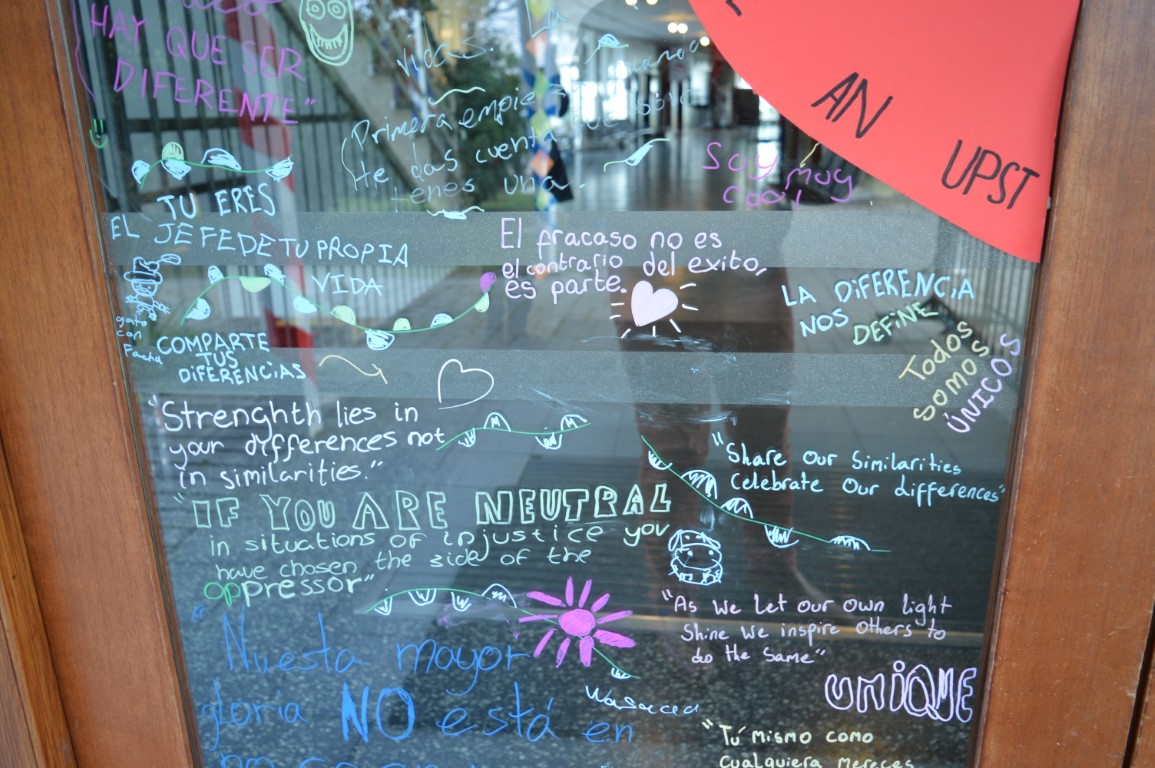 HAY QUE SER
DIFERENTE"
vidas. La
Primera empieza cuando
te das cuenta que solo
tenes una.
AN
UPST
Soy muy
cool
TU ERES
EL JEFE DE TU PROPIA
VIDA
El fracaso no es
el contrario del exito,
es parte.
LA DiFERENCiA
NOS DEFiNE
Todos
SOMOS
ÚNICOS
gato
con
Facha
COMPARTE
TUS
DiFERENCiAS
"Strenghth lies in
your differences not
in similarities."
"Share Our Similarities
Celebrate Our differences"
"IF YOU ARE NEUTRAL
in situations of injustice you
have chosen the side of the
oppressor"
"As we let our own light
Shine we inspire others to
do the Same"
"Nuesta mayor
gloria NO está en
UNiQUE
"Tú mismo como
cualquiera mereces